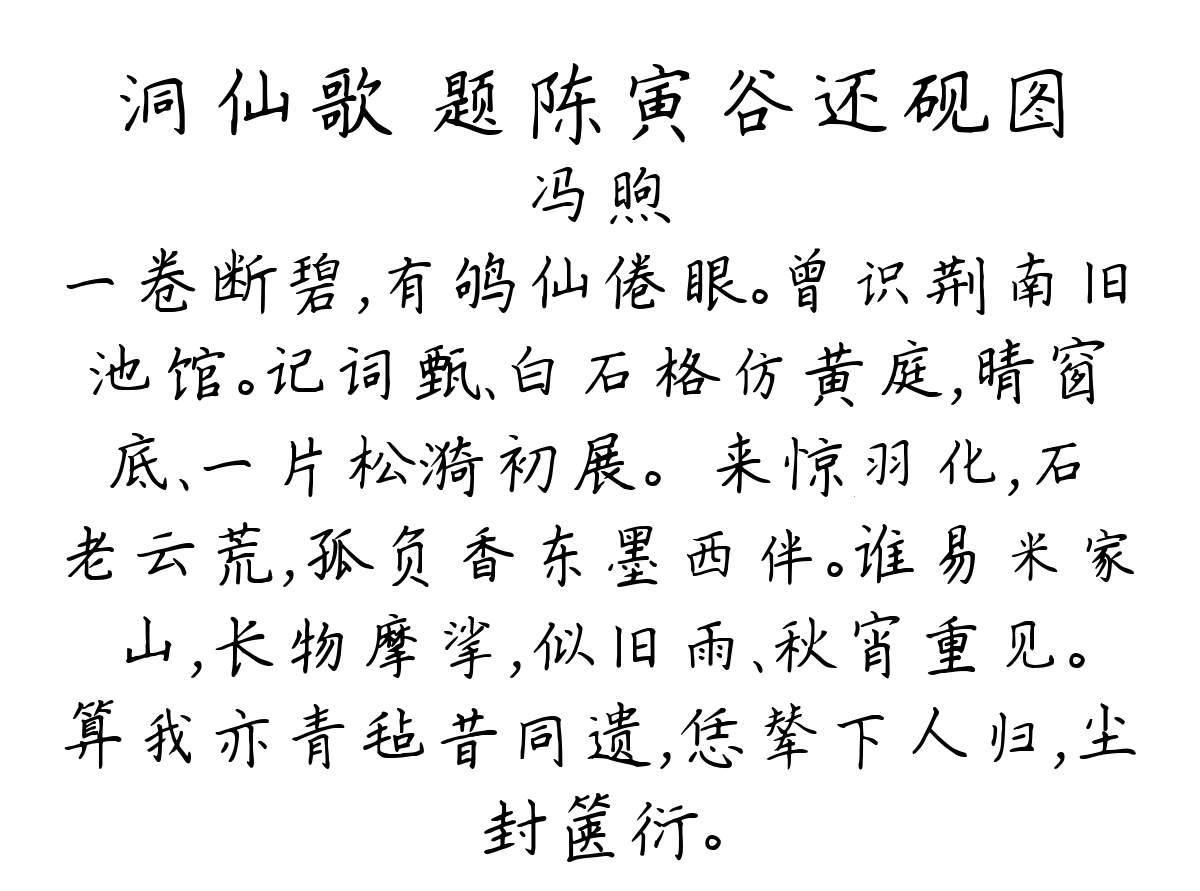 洞仙歌 题陈寅谷还砚图
冯煦
一卷断碧,有鸲仙倦眼。曾识荆南旧
池馆。记词甄、白石格仿黄庭,晴窗
底、一片松漪初展。 来惊羽化,石
老云荒,孤负香东墨西伴。谁易米家
山,长物摩挲,似旧雨、秋宵重见。
算我亦青毡昔同遗,恁辇下人归,尘
封箧衍。